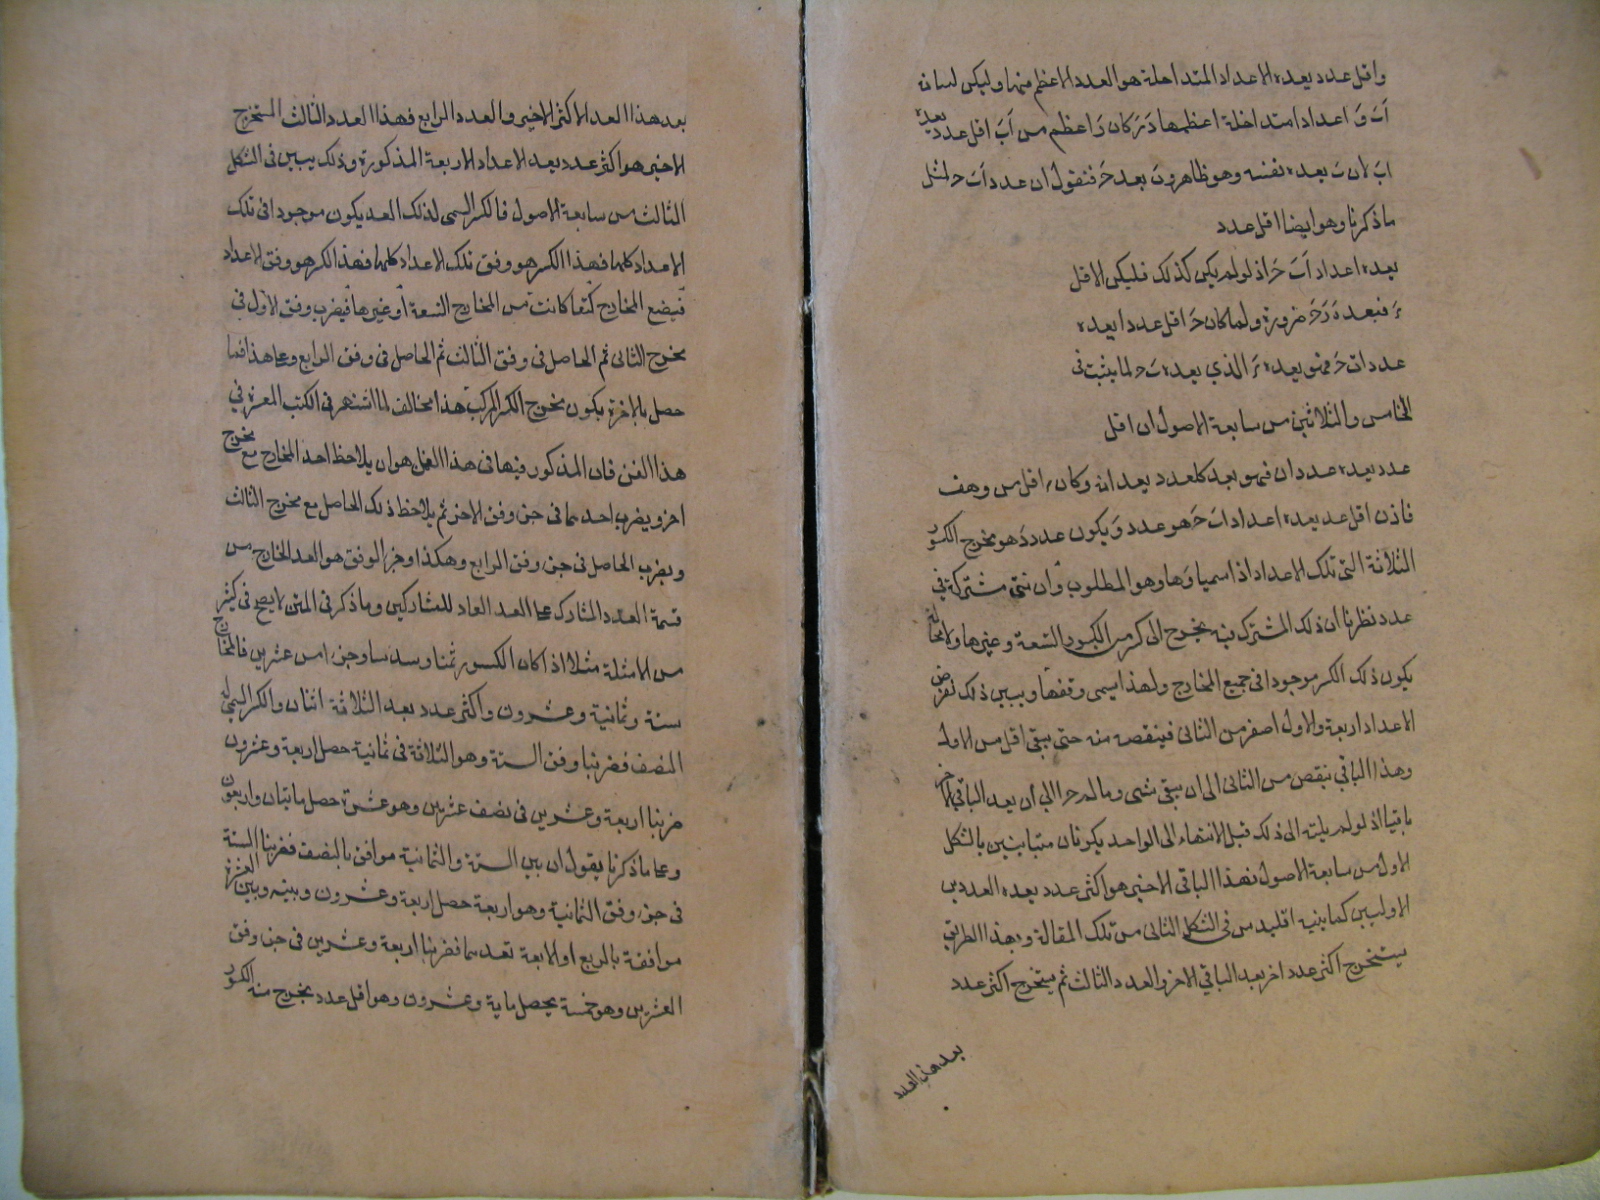 واقل عدد يعده الاعداد المتداخلة هو العدد الاعظم منها وليكن لبيانه
اَبَ وَ اعدادا متداخلة اعظمها دَ كان وَ اعظم من اَبَ اقل عدد يعده
ابَ لان بَ يعده نفسه وهو ظاهر وبَ يعد حَ فنقول ان عدد اَبَ حَ لمثل
ما ذكرنا وهو ايضا اقل عدد
يعده اعداد اَبَ حَ اذ لو لم يكن كذلك فليكن الاقل
رَ فيعده دَ حَ ضرورة ولما كان حَ اقل عدد يعده
عددا بَ حَ فهو يعده رَ الذي يعده بَ حَ لما يثبت فى
الخامس والثلاثين من سابعة الاصول ان اقل
عدد يعده عددان فهو يعد كل عدد يعدانه وكان رَ اقل من وَ هف
فاذن اقل عدد يعده اعداد اَبَ حَ هو عدد وَ يكون عدد دَ هو مخرج الكسور
الثلاثة التى تلك الاعداد اذا سمياوها وهو المطلوب وان نتى مشتركة فى
عدد نظرنا ان ذلك المشترك فيه يخرج الى كسر من الكسور التسعة وغيرها ولا محالة
يكون ذلك الكسر موجودا فى جميع المخارج ولهذا يسمى وقفها ويبين ذلك نفرض
الاعداد اربعة والاول اصغر من الثانى فينقصه منه حتى يبقى اقل من الاول
وهذا الباقى ينقص من الثانى الى ان يبقى شىء وما لم جرا الى ان يعد الباقى الاخر
باقيا اذ لو لم يلته الى ذلك قبل الانتهاء الى الواحد يكونان متباينين بالشكل
الاول من سابعة الاصول فهذا الباقى الاخير هو اكثر عدد يعده العددين
الاوليين كما بينه اقليدس فى الشكل الثانى من تلك المقالة وبهذا الطريق
يستخرج اكثر عدد اخر يعد الباقى الاخر والعدد الثالث ثم يستخرج اكثر عدد
بعد هذا العدد
يعد هذا العدد الاكثر الاخير والعدد الرابع فهذا العدد الثالث المستخرج
الاخير هو اكثر عدد يعد الاعداد الاربعة المذكورة وذلك يبين فى الشكل
الثالث من سابعة الاصول فالكسر السمى لذلك العدد يكون موجودا فى تلك
الاعداد كلها فهذا الكسر هو وفق تلك الاعداد كلها فهذا الكسر هو وفق الاعداد
فيضع المخارج كيفما كانت من المخارج التسعة او غيرها فيضرب وفق الاول فى
مخرج الثانى ثم الحاصل فى وفق الثالث ثم الحاصل فى وفق الرابع وعلى هذا فما
حصل بالاخرة يكون مخرج الكسر المركب هذا مخالف لما اشتهر فى الكتب المعتبرة فى
هذا الفن فان المذكور فيها فى هذا العمل هو ان يلاحظ احد المخارج مع مخرج
اخر ويضرب احدهما فى جزء وفق الاخر ثم يلاحظ ذلك الحاصل مع مخرج الثالث
ويضرب الحاصل فى جزء وفق الرابع وهكذا وجزء الوفق هو العدد الخارج من
قسمة العدد المشارك على العدد العاد للمشاركين وما ذكر فى المتن لا يصح فى كثير
من الامثلة مثلا اذا كان الكسور ثمنا وسدسا وجزءا من عشرين فالمخارج
ستة وثمانية وعشرون واكثر عدد يعد الثلاثة اثنان والكسر السمى له
النصف فضربنا وفق الستة وهو الثلاثة فى ثمانية حصل اربعة وعشرون
ضربنا اربعة وعشرين فى نصف عشرين وهو عشرة حصل مايتان واربعون
وعلى ما ذكرنا يقول ان بين الستة والثمانية موافق بالنصف فضربنا الستة
فى جزء وفق الثمانية وهو اربعة حصل اربعة وعشرون وبينه وبين العشرين
موافقة بالربع اذ الاربعة تعدهما فضربنا اربعة وعشرين فى جزء وفق
العشرين وهو خمسة يحصل ماية وعشرون وهو اقل عدد يخرج منه الكسور